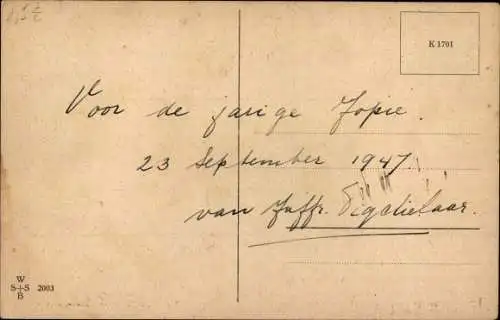 K 1701
Voor de jarige Jopie.
23 September 1947.
van Juffr.
W
S+S 2003
B